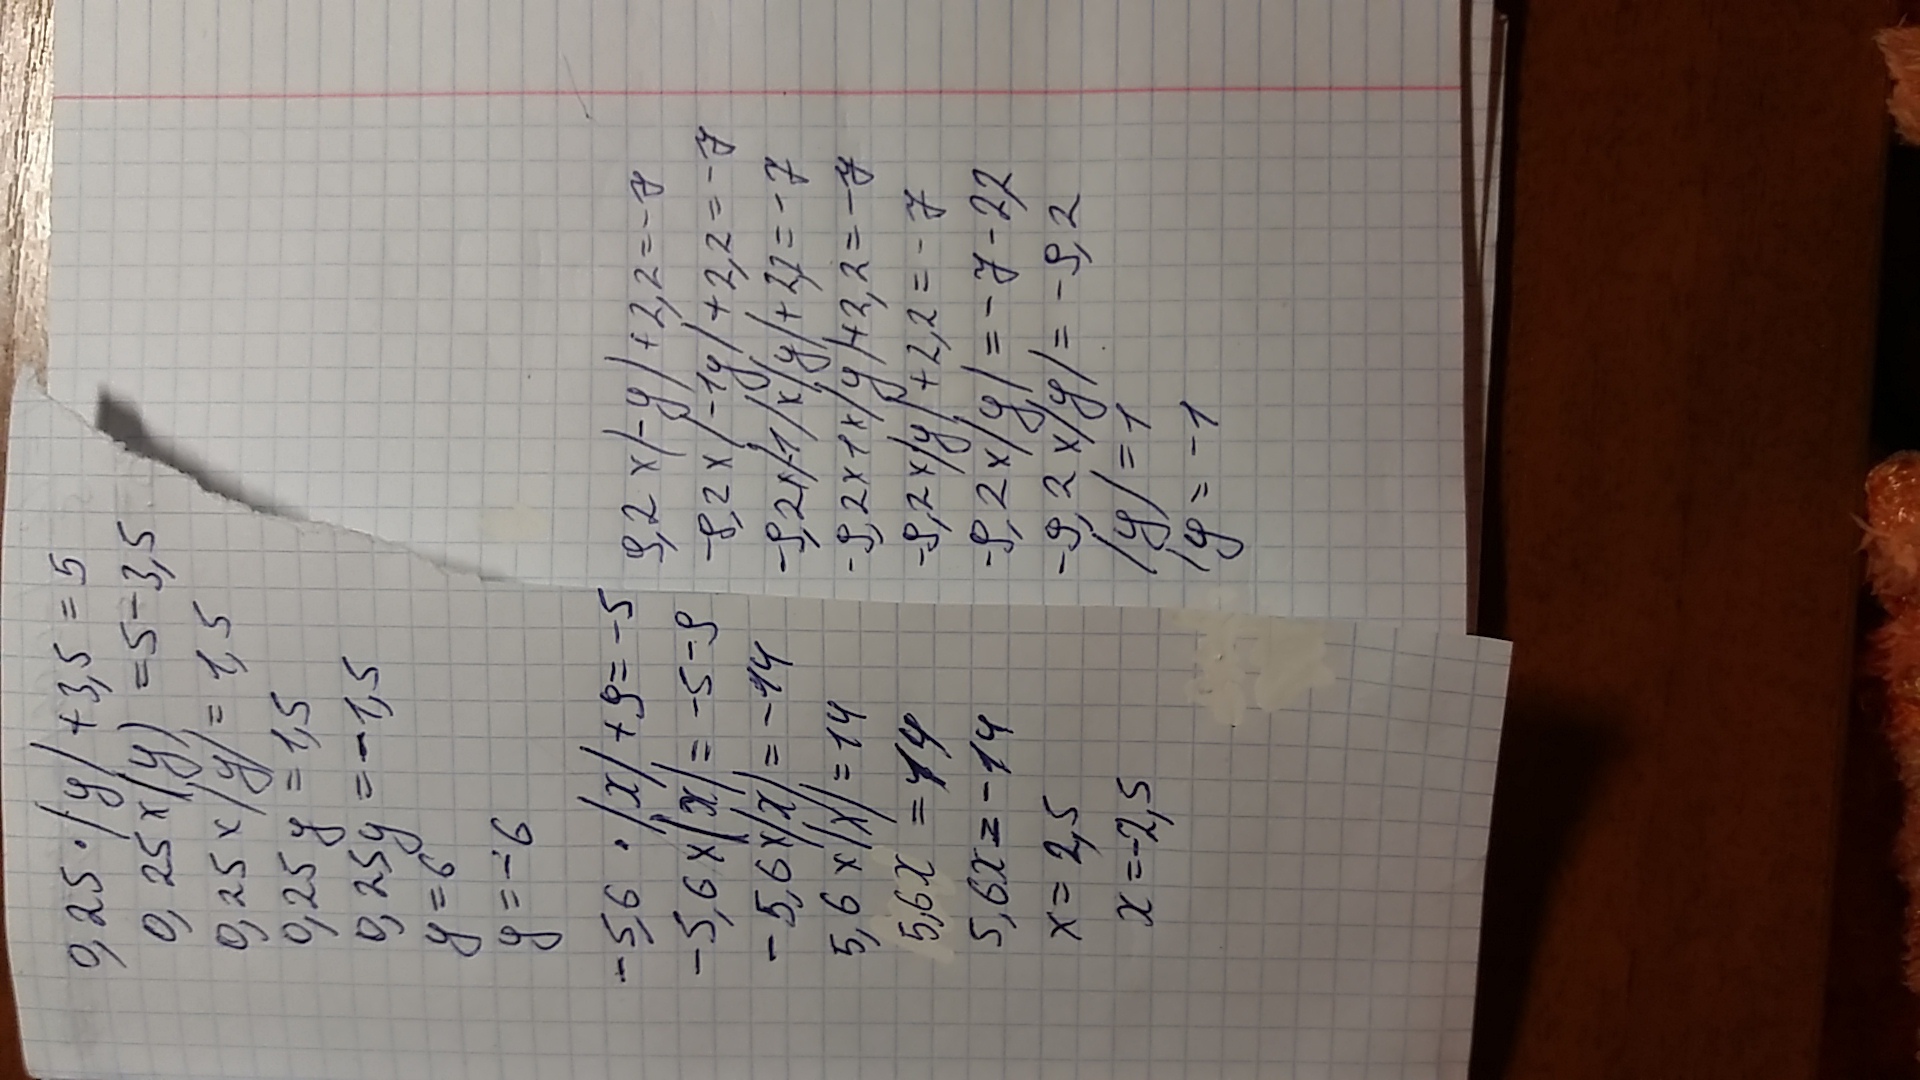 0,25·/y/+3,5=5
0,25x/y/=5-3,5
0,25x/y/=1,5
0,25y=1,5
0,25y=-1,5
y=6
y=-6
-5,6·/x/+9=-5
-5,6x/x/=-5-9
-5,6x/x/=-14
5,6x/x/=14
5,6x=14
5,6x=-14
x=2,5
x=-2,5
9,2x/-y/+2,2=-7
-9,2x/-1y/+2,2=-7
-9,2x/-1/x/y/+2,2=-7
-9,2x1x/y/+2,2=-7
-9,2x/y/+2,2=-7
-9,2x/y/=-7-2,2
-9,2x/y/=-9,2
/y/=1
/y=-1